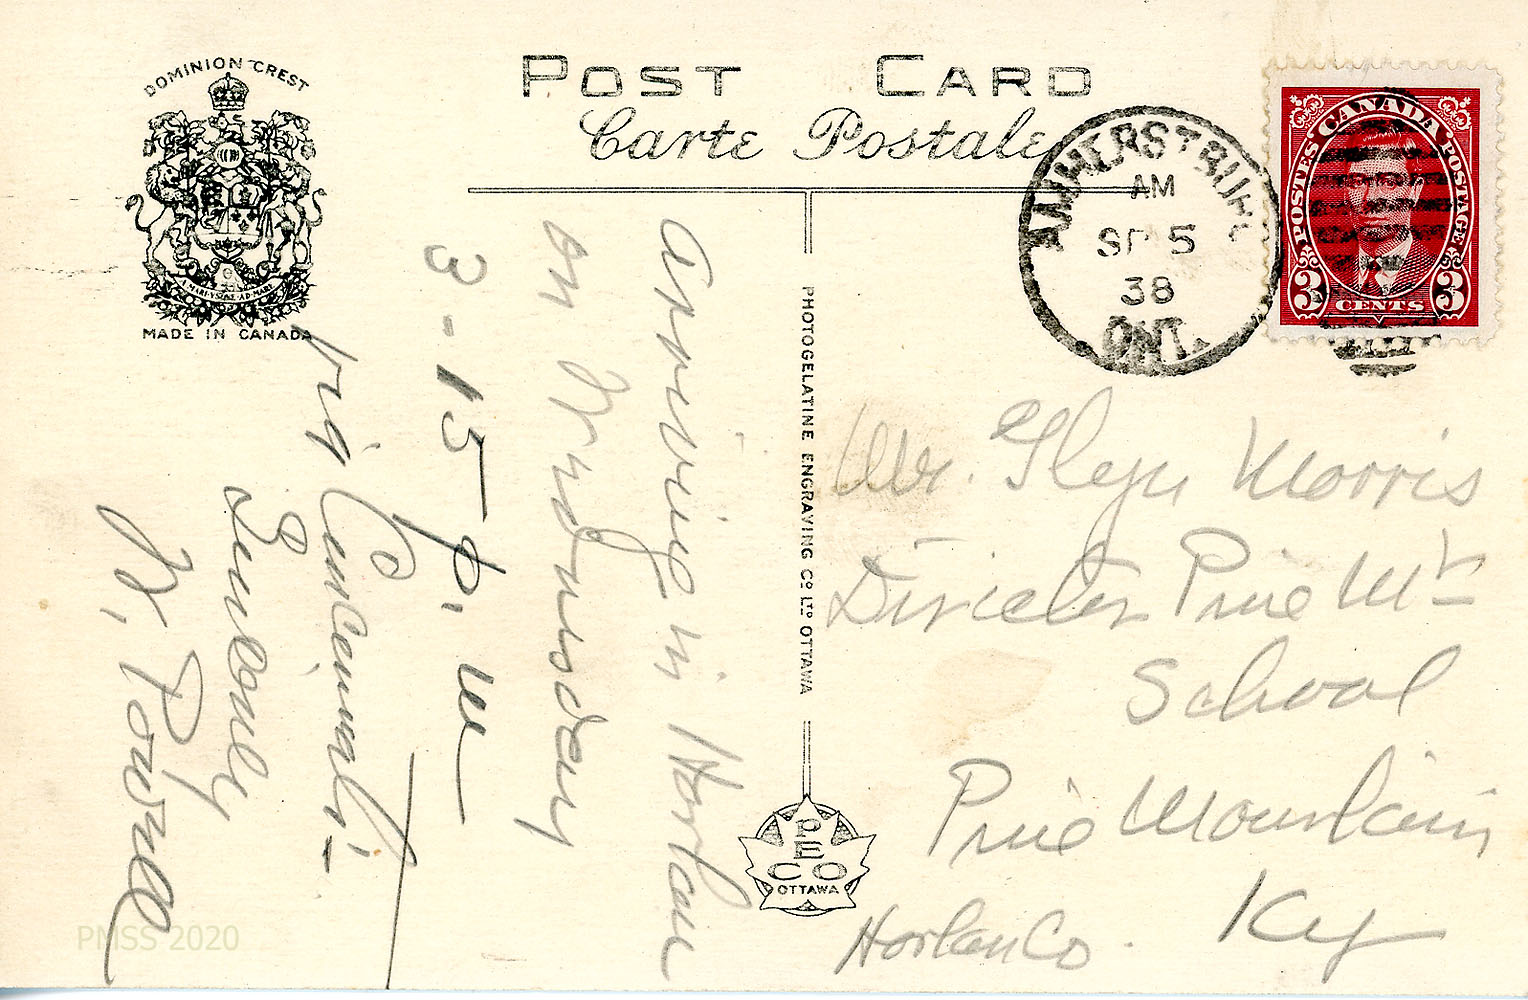 DOMINION CREST
A MARI VSQUE AD MARE
MADE IN CANADA
POST CARD
Carte Postale
AMHERSTBURG
AM
SP 5
38
ONT.
POSTES CANADA POSTAGE
3 CENTS 3
Arriving in Harlan
on Wednesday
3-15 p.m
via Cincinnati-
Sincerely
PHOTOGELATINE ENGRAVING CO LTD OTTAWA
PECO
OTTAWA
Mr. Glyn Morris
Director Pine Mt
School
Pine Mountain
Harlan Co. Ky
PMSS 2020